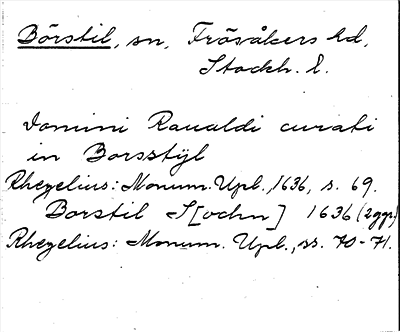 Börstil, sn, Frösåkers hd,
Stockh. l.
Domini Raualdi curati
in Borsstÿl
Rhezelius: Monum. Upl. 1636, s. 69.
Borstil S[ochn] 1636 (2ggr)
Rhezelius: Monum. Upl., ss. 70-71.